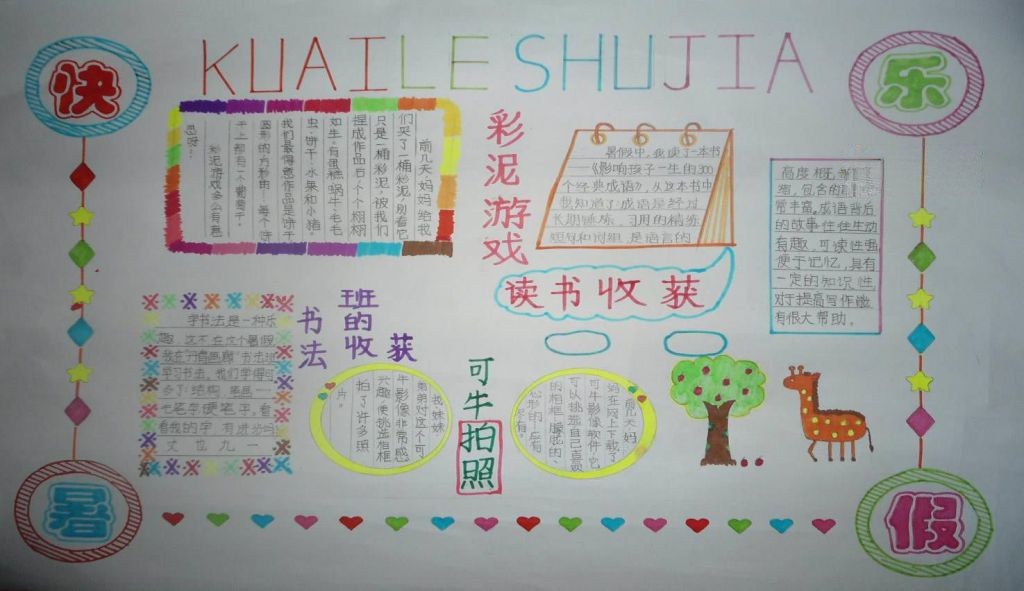 KUAILE SHUJIA
快
乐
暑
假
彩泥游戏
前几天妈妈给我
们买了一桶彩泥，别看它
只是一桶彩泥，被我们
捏成作品后个个栩栩
如生。有蛋糕、蜗牛、毛毛
虫、饼干、水果和小猪。
我们最得意作品是饼干
圆形的方形的，每个饼
干上都有一个葡萄干。
彩泥游戏多么有意
思呀！
暑假中，我读了一本书
《影响孩子一生的300
个经典成语》，从这本书中
我知道了：成语是经过
长期锤炼、习用的精练
短句和词组，是语言的
高度
缩，包含的
常丰富。成语背后
的故事往往生动
有趣，可读性强
便于记忆，具有
一定的知识性，
对于提高写作能
有很大帮助。
读书收获
书法
班的收获
学书法是一种乐
趣，这不在这个暑假
我在 书法班
学习书法。我们学得可
多了！结构、笔画
毛笔字硬笔字，看
着我的字有进步吗
丈 也 九 一
可牛拍照
我、妹妹、
弟弟对这个可
牛影像非常感
兴趣，使挑选相框
拍了许多照
片。
前几天妈
妈在网上下载了
可牛影像软件，它
可以挑选自己喜欢
的相框，朦胧的、
心形的应有
尽有。